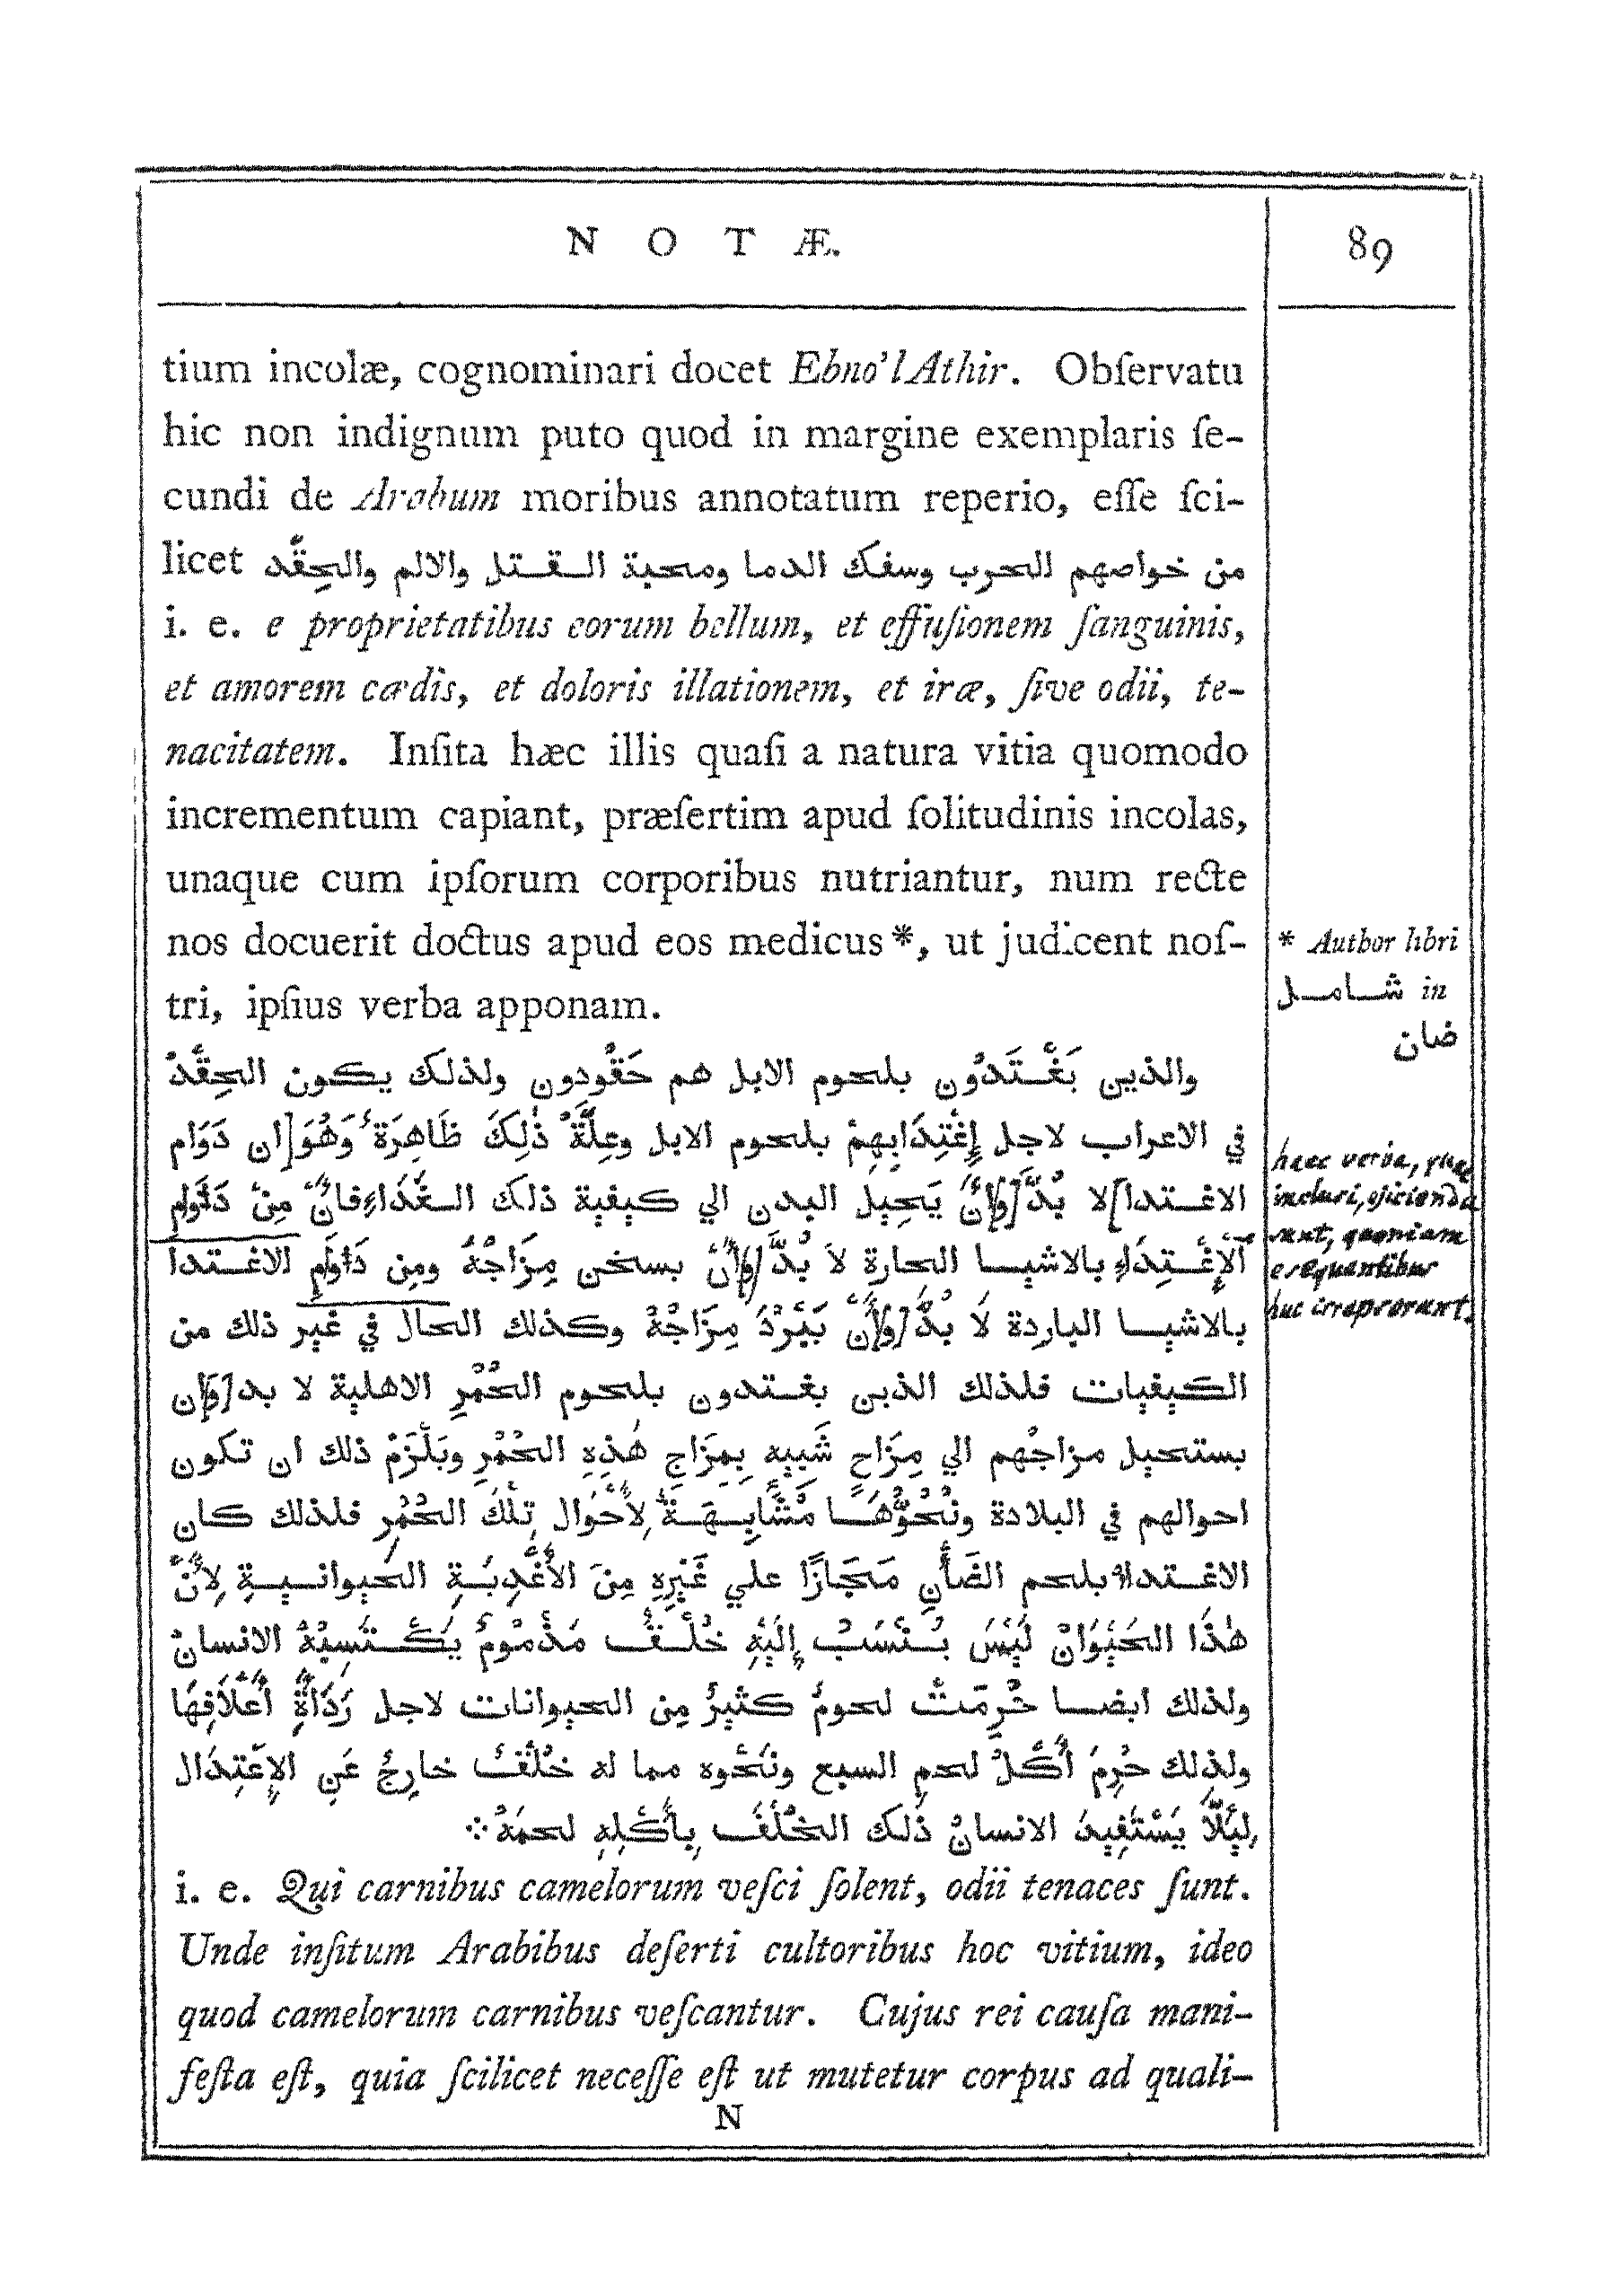 NOTÆ.
89
tium incolæ, cognominari docet Ebno'l Athir. Obſervatu
hic non indignum puto quod in margine exemplaris ſe-
cundi de Arabum moribus annotatum reperio, eſſe ſci-
licet من خواصهم الحرب وسفك الدما ومحبة القتل والالم والحِقْد
i. e. e proprietatibus eorum bellum, et effuſionem ſanguinis,
et amorem cædis, et doloris illationem, et iræ, ſive odii, te-
nacitatem. Inſita hæc illis quaſi a natura vitia quomodo
incrementum capiant, præſertim apud ſolitudinis incolas,
unaque cum ipſorum corporibus nutriantur, num recte
nos docuerit doctus apud eos medicus *, ut judicent noſ-
tri, ipſius verba apponam.
* Author libri
شامل in
ضان
والذين يَغْتَدُون بلحوم الابل هم حَقُودون ولذلك يكون الحِقْدُ
في الاعراب لاجل إِغْتِدَايِهِمْ بلحوم الابل وعِلَّةُ ذٰلِكَ ظَاهِرَة وَهُوَ [ان دَوَام
الاغتدا] لا بُدَّ [وَ]أَنْ يَحِيل البدن الي كيفية ذلك الغَدَاءِ فانَّ مِنْ دَوَام
الإِغْتِدَاءِ بالاشيا الحارة لاَ بُدَّ [وَ]أَنْ يسخن مِزَاجُهُ ومِن دَوَام الاغتدا
بالاشيا الباردة لَا بُدَّ [وَ]أَنْ يَبْرُدَ مِزَاجُهُ وكذلك الحال في غير ذلك من
الكيفيات فلذلك الذين يغتدون بلحوم الحُمُرِ الاهلية لا بد [و]ان
يستحيل مزاجُهم الي مِزَاجٍ شَبِيهٍ بِمِزَاجِ هٰذِهِ الحُمُرِ ويَلْزَمُ ذلك ان تكون
احوالهم في البلادة ونُحُوُّهَا مُشَابِهَةً لِأَحْوَال تِلْكَ الحُمُرِ فلذلك كان
الاغتداء بلحم الضَأْنِ مَجَازًا علي غَيْرِهِ مِنَ الأَغْدِيَةِ الحيوانيةِ لِأَنَّ
هٰذَا الحَيْوَانَ لَيْسَ يُنْسَبُ إِلَيْهِ خُلْقٌ مَذْمُومٌ يَكْتَسِيُهُ الانسانُ
ولذلك ايضا حُرِمَتْ لحومُ كثيرٌ مِن الحيوانات لاجل رَدَاةِ أَعْلَافِهَا
ولذلك حُرِمَ أَكْلُ لحمِ السبع ونَحْوه مما له خُلْقٌ خارِجٌ عَنِ الإِعْتِدَال
لِيَلَّا يَسْتَفِيدَ الانسانُ ذلك الخُلْقَ بِأَكْلِهِ لحمَهُ ⁘
haec verba, quae
inclusi, ejicienda
sunt, quoniam
e sequentibus
huc irrepserunt.
i. e. Qui carnibus camelorum veſci ſolent, odii tenaces ſunt.
Unde inſitum Arabibus deſerti cultoribus hoc vitium, ideo
quod camelorum carnibus veſcantur. Cujus rei cauſa mani-
feſta eſt, quia ſcilicet neceſſe eſt ut mutetur corpus ad quali-
N